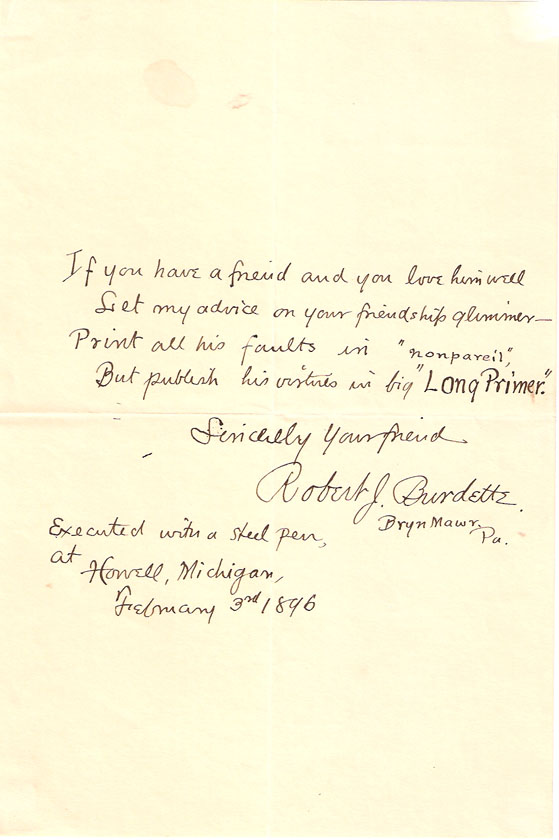 If you have a friend and you love him well
Let my advice on your friendship glimmer—
Print all his faults in "nonpareil",
But publish his virtues in big "Long Primer."
Sincerely Your friend
Robert J. Burdette.
Bryn Mawr,
Pa.
Executed with a steel pen,
at
Howell, Michigan,
February 3rd 1896